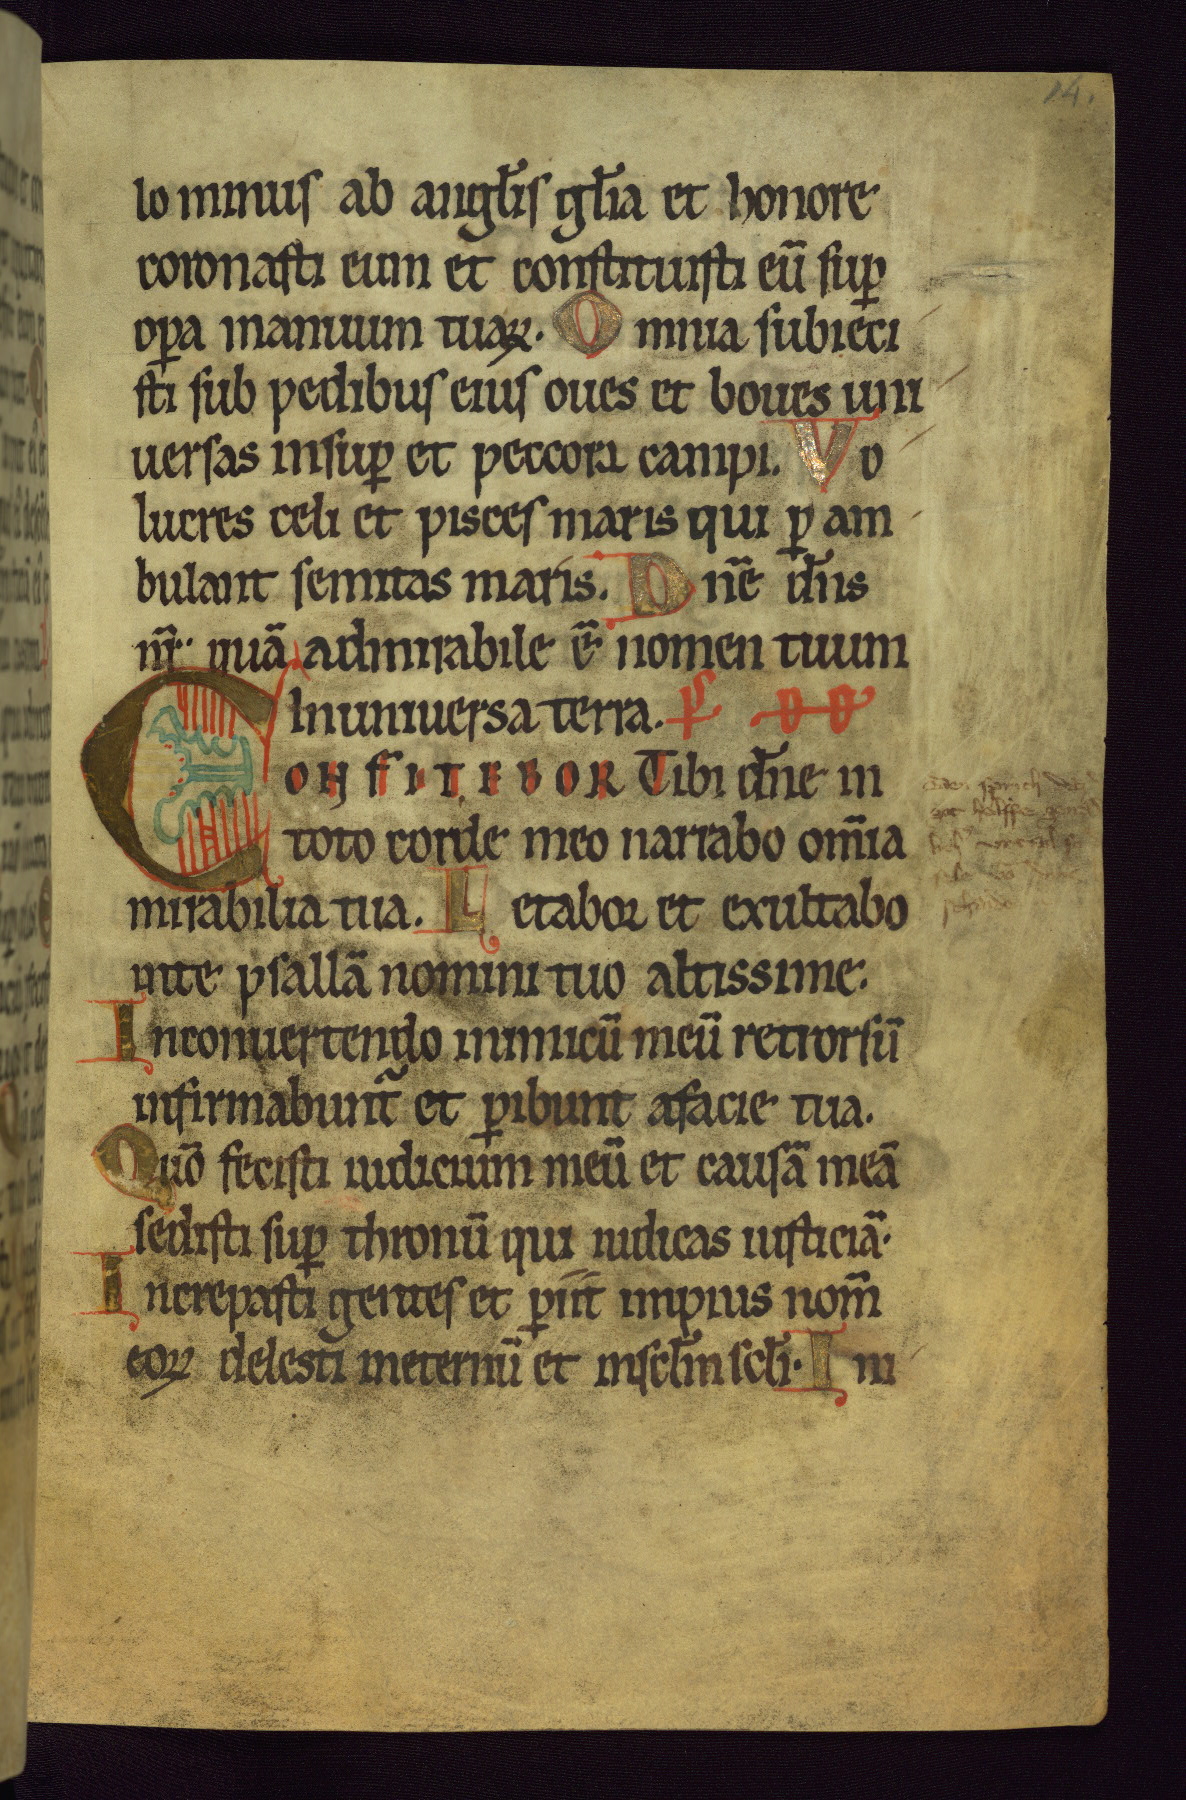 14.
lo minus ab angl̄is gl̄ia et honore
coronasti eum et constituisti eū sup̱
op̱a manuum tuaꝝ. Omnia subieci
sti sub pedibus eius oues et boues uni
uersas insup̱ et peccora campi. Vo
lucres celi et pisces maris qui ꝑ am
bulant semitas maris. Dn̄e dn̄s
nr̄ quā admirabile ē nomen tuum
In uniuersa terra. ps̄
CONFITEBOR Tibi dn̄e in
toto corde meo narrabo om̄ia
mirabilia tua. Letabor et exultabo
inte psallā nomini tuo altissime.
Inconuertendo inimicū meū retrorsū
infirmabunt̄ et ꝑibunt afacie tua.
Quō fecisti iudicium meū et causā meā
sedisti sup̱ thronū qui iudicas iusticiā.
Increpasti gentes et ꝑiīt impius nom̄
eoꝝ delesti ineternū et inscl̄m scl̄i. In